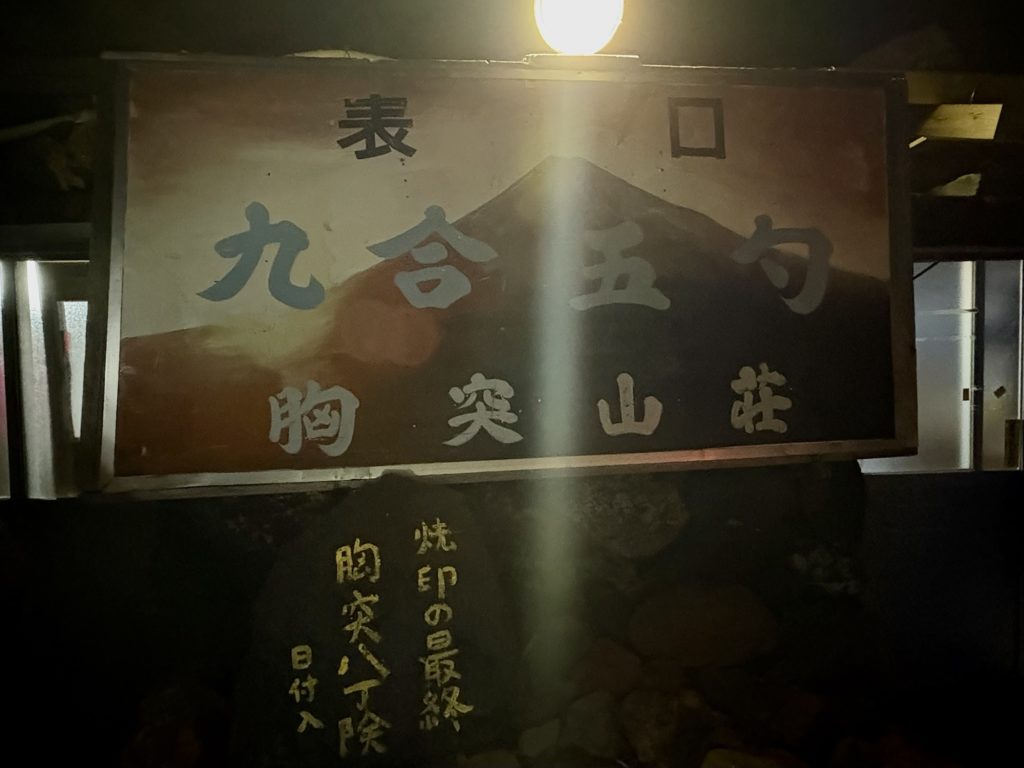 表口
九合五勺
胸突山荘
焼印の最終
胸突八丁険
日付入